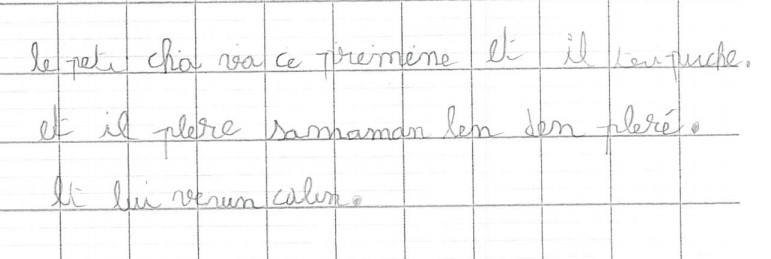 le peti cha va ce prémene et il
et il plere samaman len den pleré.
et lui verun calin.